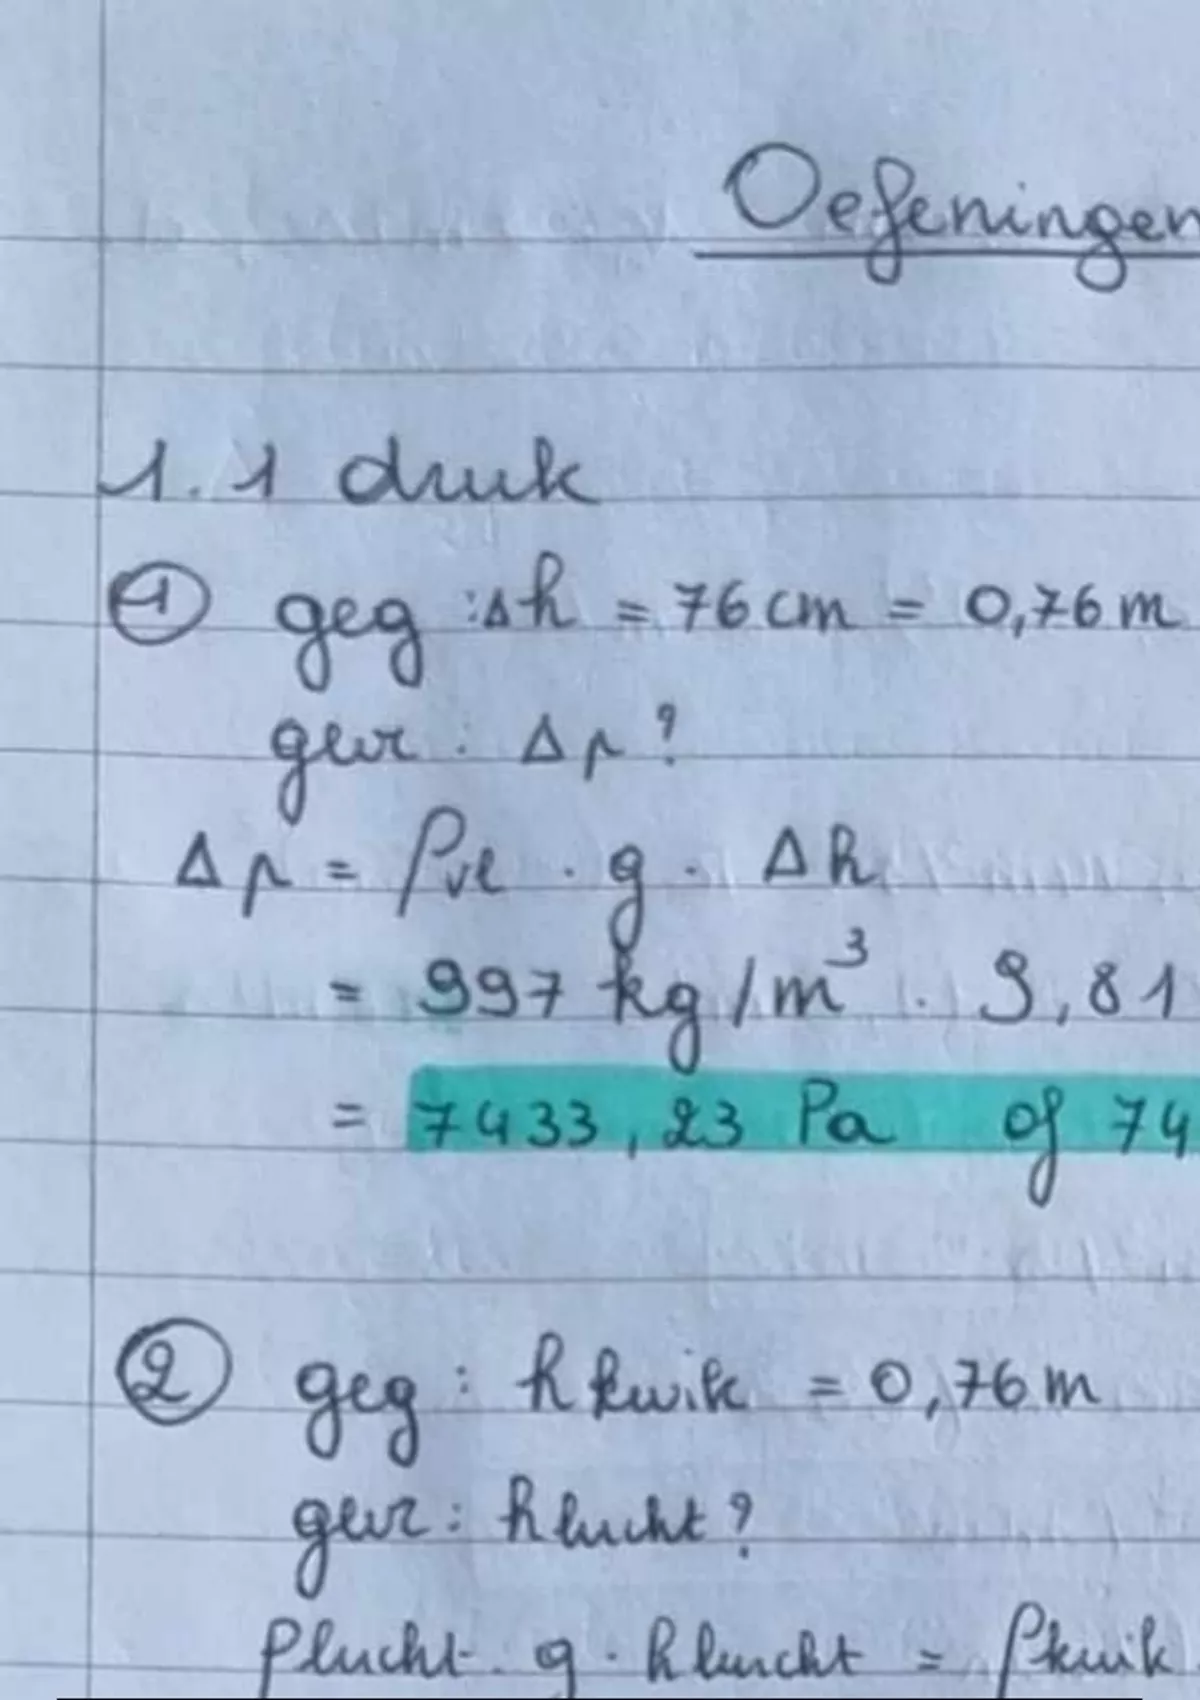 Oefeningen
1.1 druk
① geg : Δh = 76 cm = 0,76 m
gevr : Δp ?
Δp = ρvl . g . Δh
= 997 kg/m³ . 9,81
= 7433,23 Pa of 74
② geg : h kwik = 0,76 m
gevr : h lucht ?
ρlucht . g . h lucht = ρkwik .